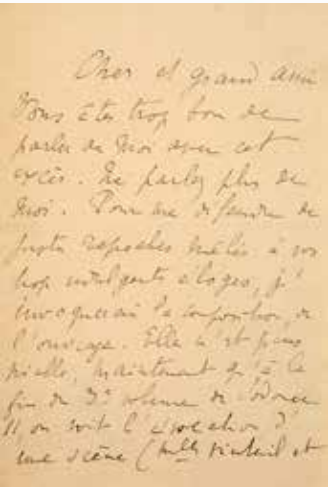 Cher et grand ami
Vous êtes trop bon de
parler de moi avec cet
excès. Ne parlez plus de
moi. Pour me défendre de
justes reproches mêlés à vos
trop indulgents éloges, j'
invoquerai la composition, de
l'ouvrage. Elle n'est pas
réelle, maintenant qu'à la
fin du 3e volume de l'édition
, on voit l'évocation d'
une scène (Mlle Vinteuil et